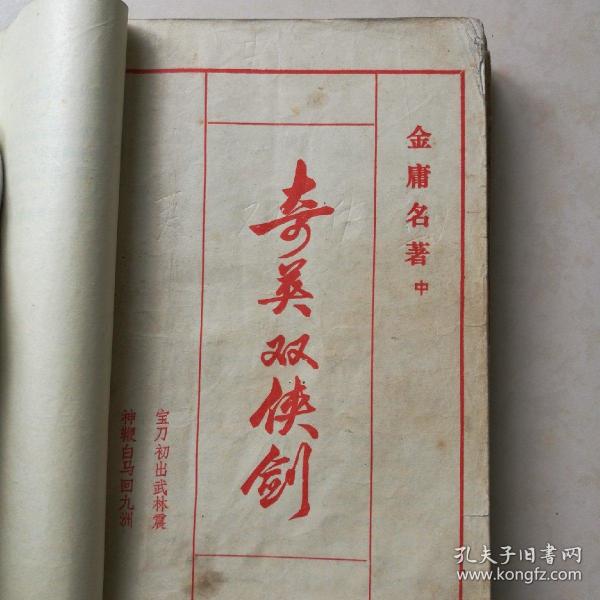 金庸名著 中
奇英双侠剑
宝刀初出武林震
神鞭白马回九洲
孔夫子旧书网
www.kongfz.com